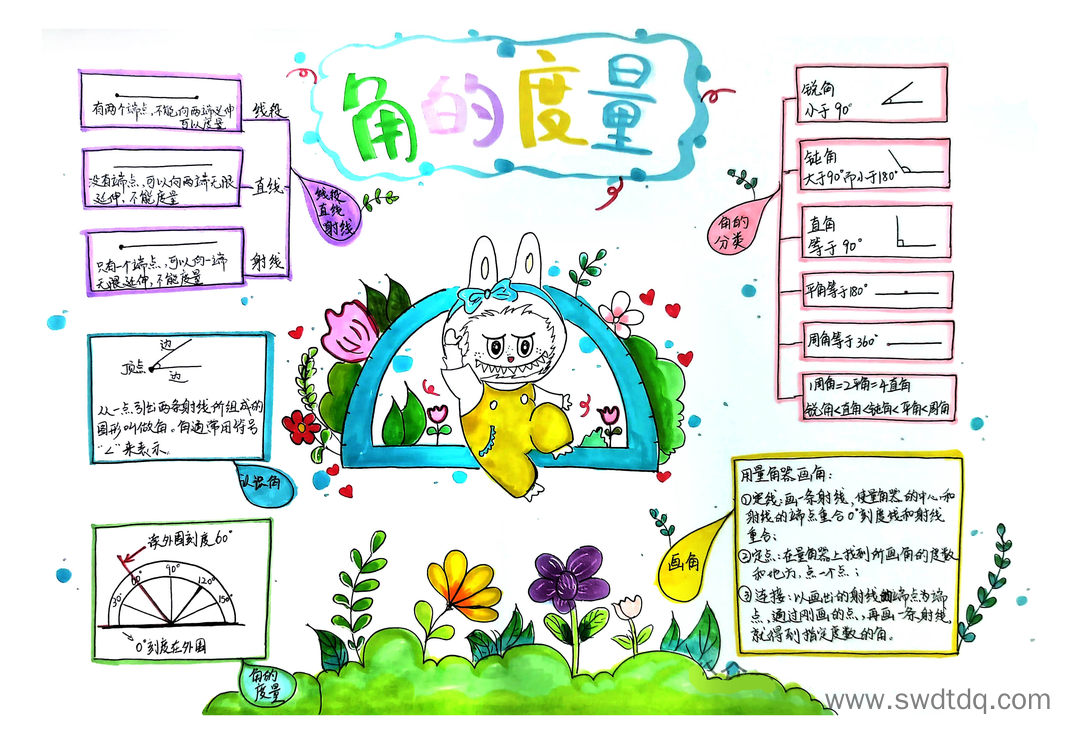 角的度量
有两个端点,不能向两端延伸
可以度量
线段
没有端点,可以向两端无限
延伸,不能度量
直线
只有一个端点,可以向一端
无限延伸,不能度量
射线
线段
直线
射线
边
顶点
边
从一点引出两条射线所组成的
图形叫做角。角通常用符号
“∠”来表示。
认识角
读外圈刻度60°
30°
60°
90°
120°
150°
0°刻度在外圈
角的
度量
角的
分类
锐角
小于90°
钝角
大于90°而小于180°
直角
等于90°
平角等于180°
周角等于360°
1周角=2平角=4直角
锐角<直角<钝角<平角<周角
画角
用量角器画角:
①定线:画一条射线,使量角器的中心和
射线的端点重合0°刻度线和射线
重合;
②定点:在量角器上找到所画角的度数
和地方,点一个点;
③连接:以画出的射线的端点为端
点,通过刚画的点,再画一条射线,
就得到指定度数的角。
www.swdtdq.com